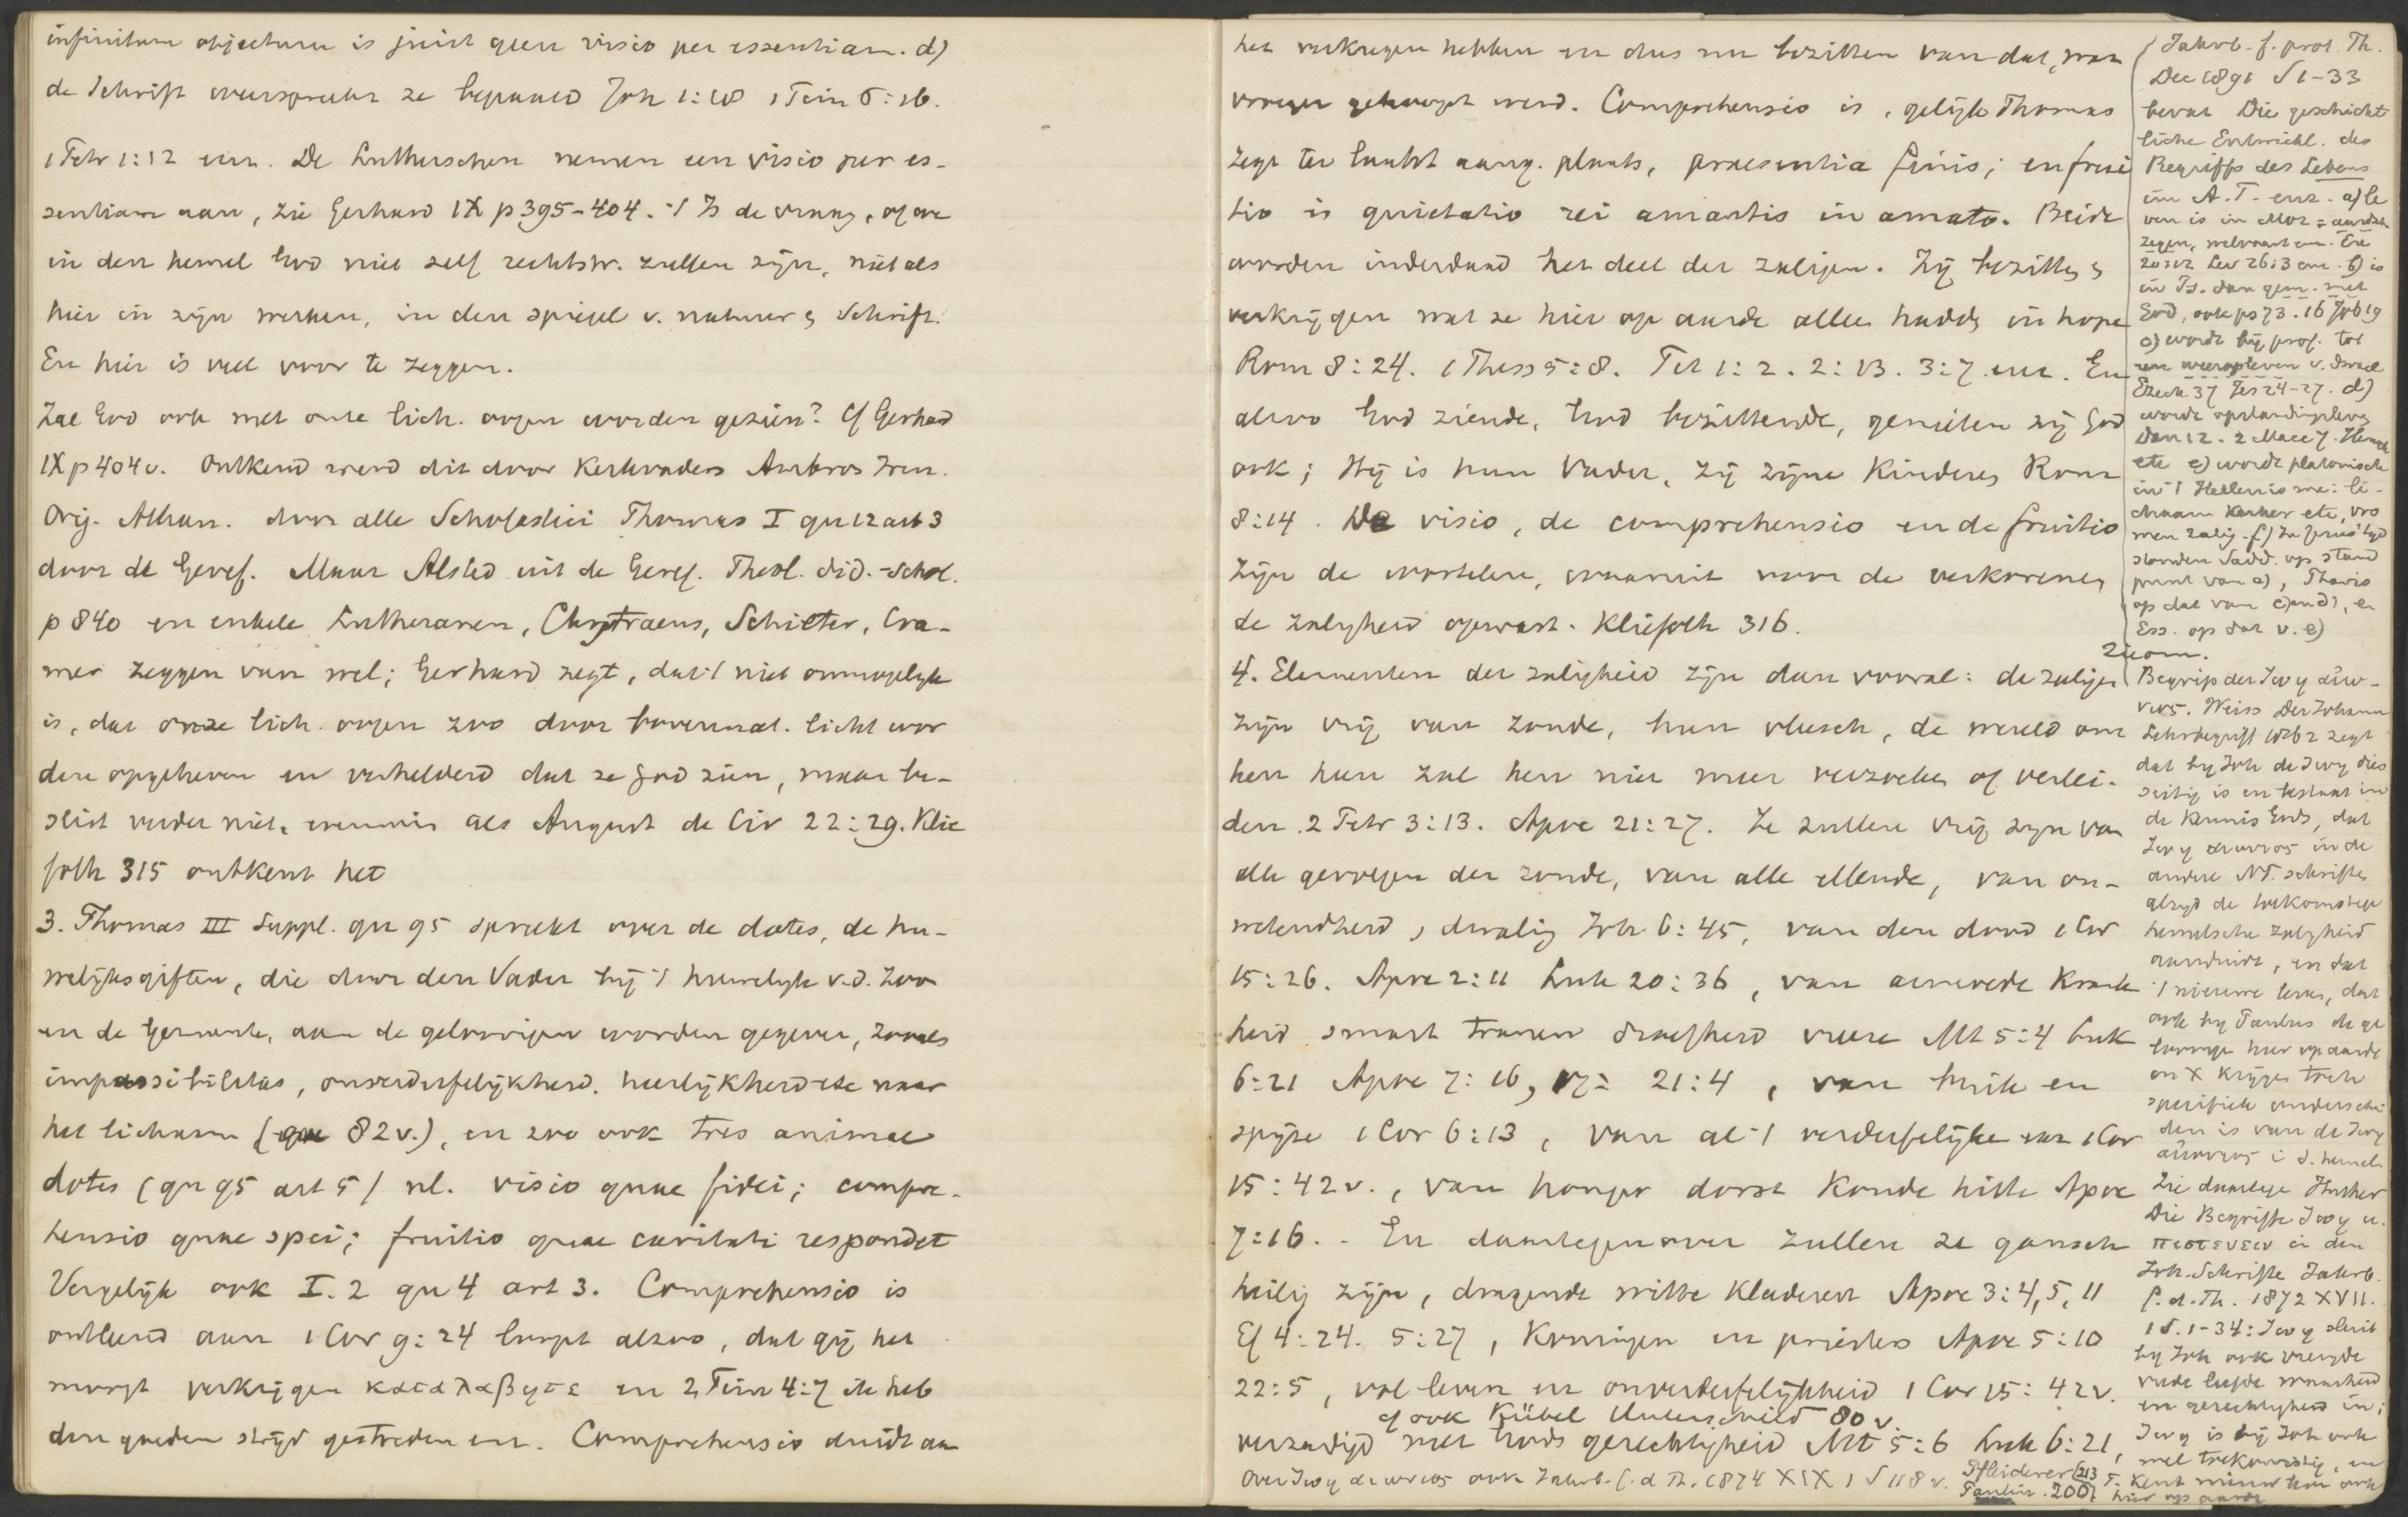 infinitum objectum is juist geen visio per essentiam. d)
de Schrift weerspreekt ze bepaald Joh 1:18 1 Tim 6:16.
1 Petr 1:12 enz. De Lutherschen nemen een visio per es-
sentiam aan, zie Gerhard IX p 395-404. 't Is de vraag, of we
in den hemel God niet zelf rechtstr. zullen zijn, niet als
hier in zijn werken, in den spiegel v. natuur & Schrift.
En hier is veel voor te zeggen.
Zal God ook met onze lich. oogen worden gezien? Cf Gerhard
IX p 404 v. Ontkend werd dit door Kerkvaders Ambros Iren.
Orig. Athan. door alle Scholastici Thomas I qu 12 art 3
door de Geref. Maar Alsted uit de Geref. Theol. did.-schol.
p 840 en enkele Lutheranen, Chytraeus, Schieter, Cra-
mer zeggen van wel; Gerhard zegt, dat 't niet onmogelijk
is, dat onze lich. oogen zoo door bovennat. licht wor
den opgeheven en verhelderd dat ze God zien, maar be-
slist verder niet, evenmin als August de Civ 22:29. Klie
foth 315 ontkent het
3. Thomas III Suppl. qu 95 spreekt over de dotes, de hu-
welijksgiften, die door den Vader bij 't huwelijk v.d. Zoon
en de Gemeente, aan de geloovigen worden gegeven, zooals
impassibilitas, onverderfelijkheid, heerlijkheid etc naar
het lichaam (qu 82 v.), en zoo ook tres animae
dotes (qu 95 art 5) nl. visio quae fidei; compre-
hensio quae spei; fruitio quae caritati respondet
Vergelijk ook I.2 qu 4 art 3. Comprehensio is
ontleend aan 1 Cor 9:24 loopt alzoo, dat gij het
moogt verkrijgen καταλαβητε en 2 Tim 4:7 ik heb
den goeden strijd gestreden enz. Comprehensio duidt aan
het verkregen hebben en dus nu bezitten van dat, waar
vroeger gehoopt werd. Comprehensio is, gelijk Thomas
zegt ter laatst aang. plaats, praesentia finis; en frui
tio is quietatio rei amantis in amato. Beide
worden inderdaad het deel der zaligen. Zij bezitten &
verkrijgen wat ze hier op aarde alleen hadden in hope
Rom 8:24. 1 Thess 5:8. Tit 1:2. 2:13. 3:7 enz. En
alzoo God ziende, God bezittende, genieten zij God
ook; Hij is hun Vader, zij zijne Kinderen Rom
8:14. De visio, de comprehensio en de fruitio
zijn de wortelen, waaruit voor de verkorenen
de zaligheid opwast. Kliefoth 316.
4. Elementen der zaligheid zijn dan vooral: de zaligen
zijn vrij van zonde, hun vleesch, de wereld om
hen heen zal hen niet meer verzoeken of verlei-
den 2 Petr 3:13. Apoc 21:27. Ze zullen vrij zijn van
alle gevolgen der zonde, van alle ellende, van on-
wetendheid, dwaling Joh 6:45, van den dood 1 Cor
15:26. Apoc 2:11 Luk 20:36, van armoede krank
heid smart tranen droefheid vreeze Mt 5:4 Luk
6:21 Apoc 7:16, 17 21:4, van buik en
spijze 1 Cor 6:13, van al 't verderfelijke 1 Cor
15:42 v., van honger dorst koude hitte Apoc
7:16. - En daartegenover zullen ze gansch
heilig zijn, dragende witte kleederen Apoc 3:4,5,11
Ef 4:24. 5:27, Koningen en priesters Apoc 5:10
22:5, vol leven en onverderfelijkheid 1 Cor 15:42 v.
cf ook Kübel Unterschied 80 v.
verzadigd met Gods gerechtigheid Mt 5:6 Luk 6:21,
Over ζωη αιωνιος ook Jahrb. f. d Th. 1874 XIX 1 S 118 v. Pfleiderer 213
Paulin. 200
Jahrb. f. prot. Th.
Dec 1891 S 1-33
bevat Die geschicht
liche Entwickl. des
Begriffs des Lebens
im A.T. enz. a) le
ven is in Moz = aardsch
zegen, welvaart enz. Ex
20:12 Lev 26:3 enz. b) is
in Ps. dan gem. met
God, ook ps 73. 16 Job 19
c) wordt bij prof. tot
een weeropleven v. Israel
Ezech 37 Jes 24-27. d)
wordt opstandingsleven
Dan 12. 2 Macc 7. Henoch
etc e) wordt platonisch
in 't Hellenisme: li-
chaam kerker etc, vro
men zalig. f) In Jezus' tijd
stonden Sadd. op stand
punt van a), Phariz
op dat van c) en d), en
Ess. op dat v. e)
Begrip der ζωη αιω-
νιος. Weiss Der Johann
Lehrbegriff 1862 zegt
dat bij Joh de ζωη dies
seitig is en bestaat in
de kennis Gods, dat
ζωη αιωνιος in de
andere NT. schriften
altijd de toekomstige
hemelsche zaligheid
aanduidt, en dat
't nieuwe leven, dat
ook bij Paulus de ge
loovigen hier op aarde
in X krijgen toch
specifiek onderschei
den is van de ζωη
αιωνιος i. d. hemel.
Zie daartegen Huther
Die Begriffe ζωη u.
πιστευειν in den
Joh. Schriften Jahrb.
f. d. Th. 1872 XVII.
1 S. 1-34: ζωη sluit
bij Joh ook vreugde
vrede liefde waarheid
en gerechtigheid in;
ζωη is bij Joh ook
wel toekomstig, en
P. kent nieuw leven ook
hier op aarde